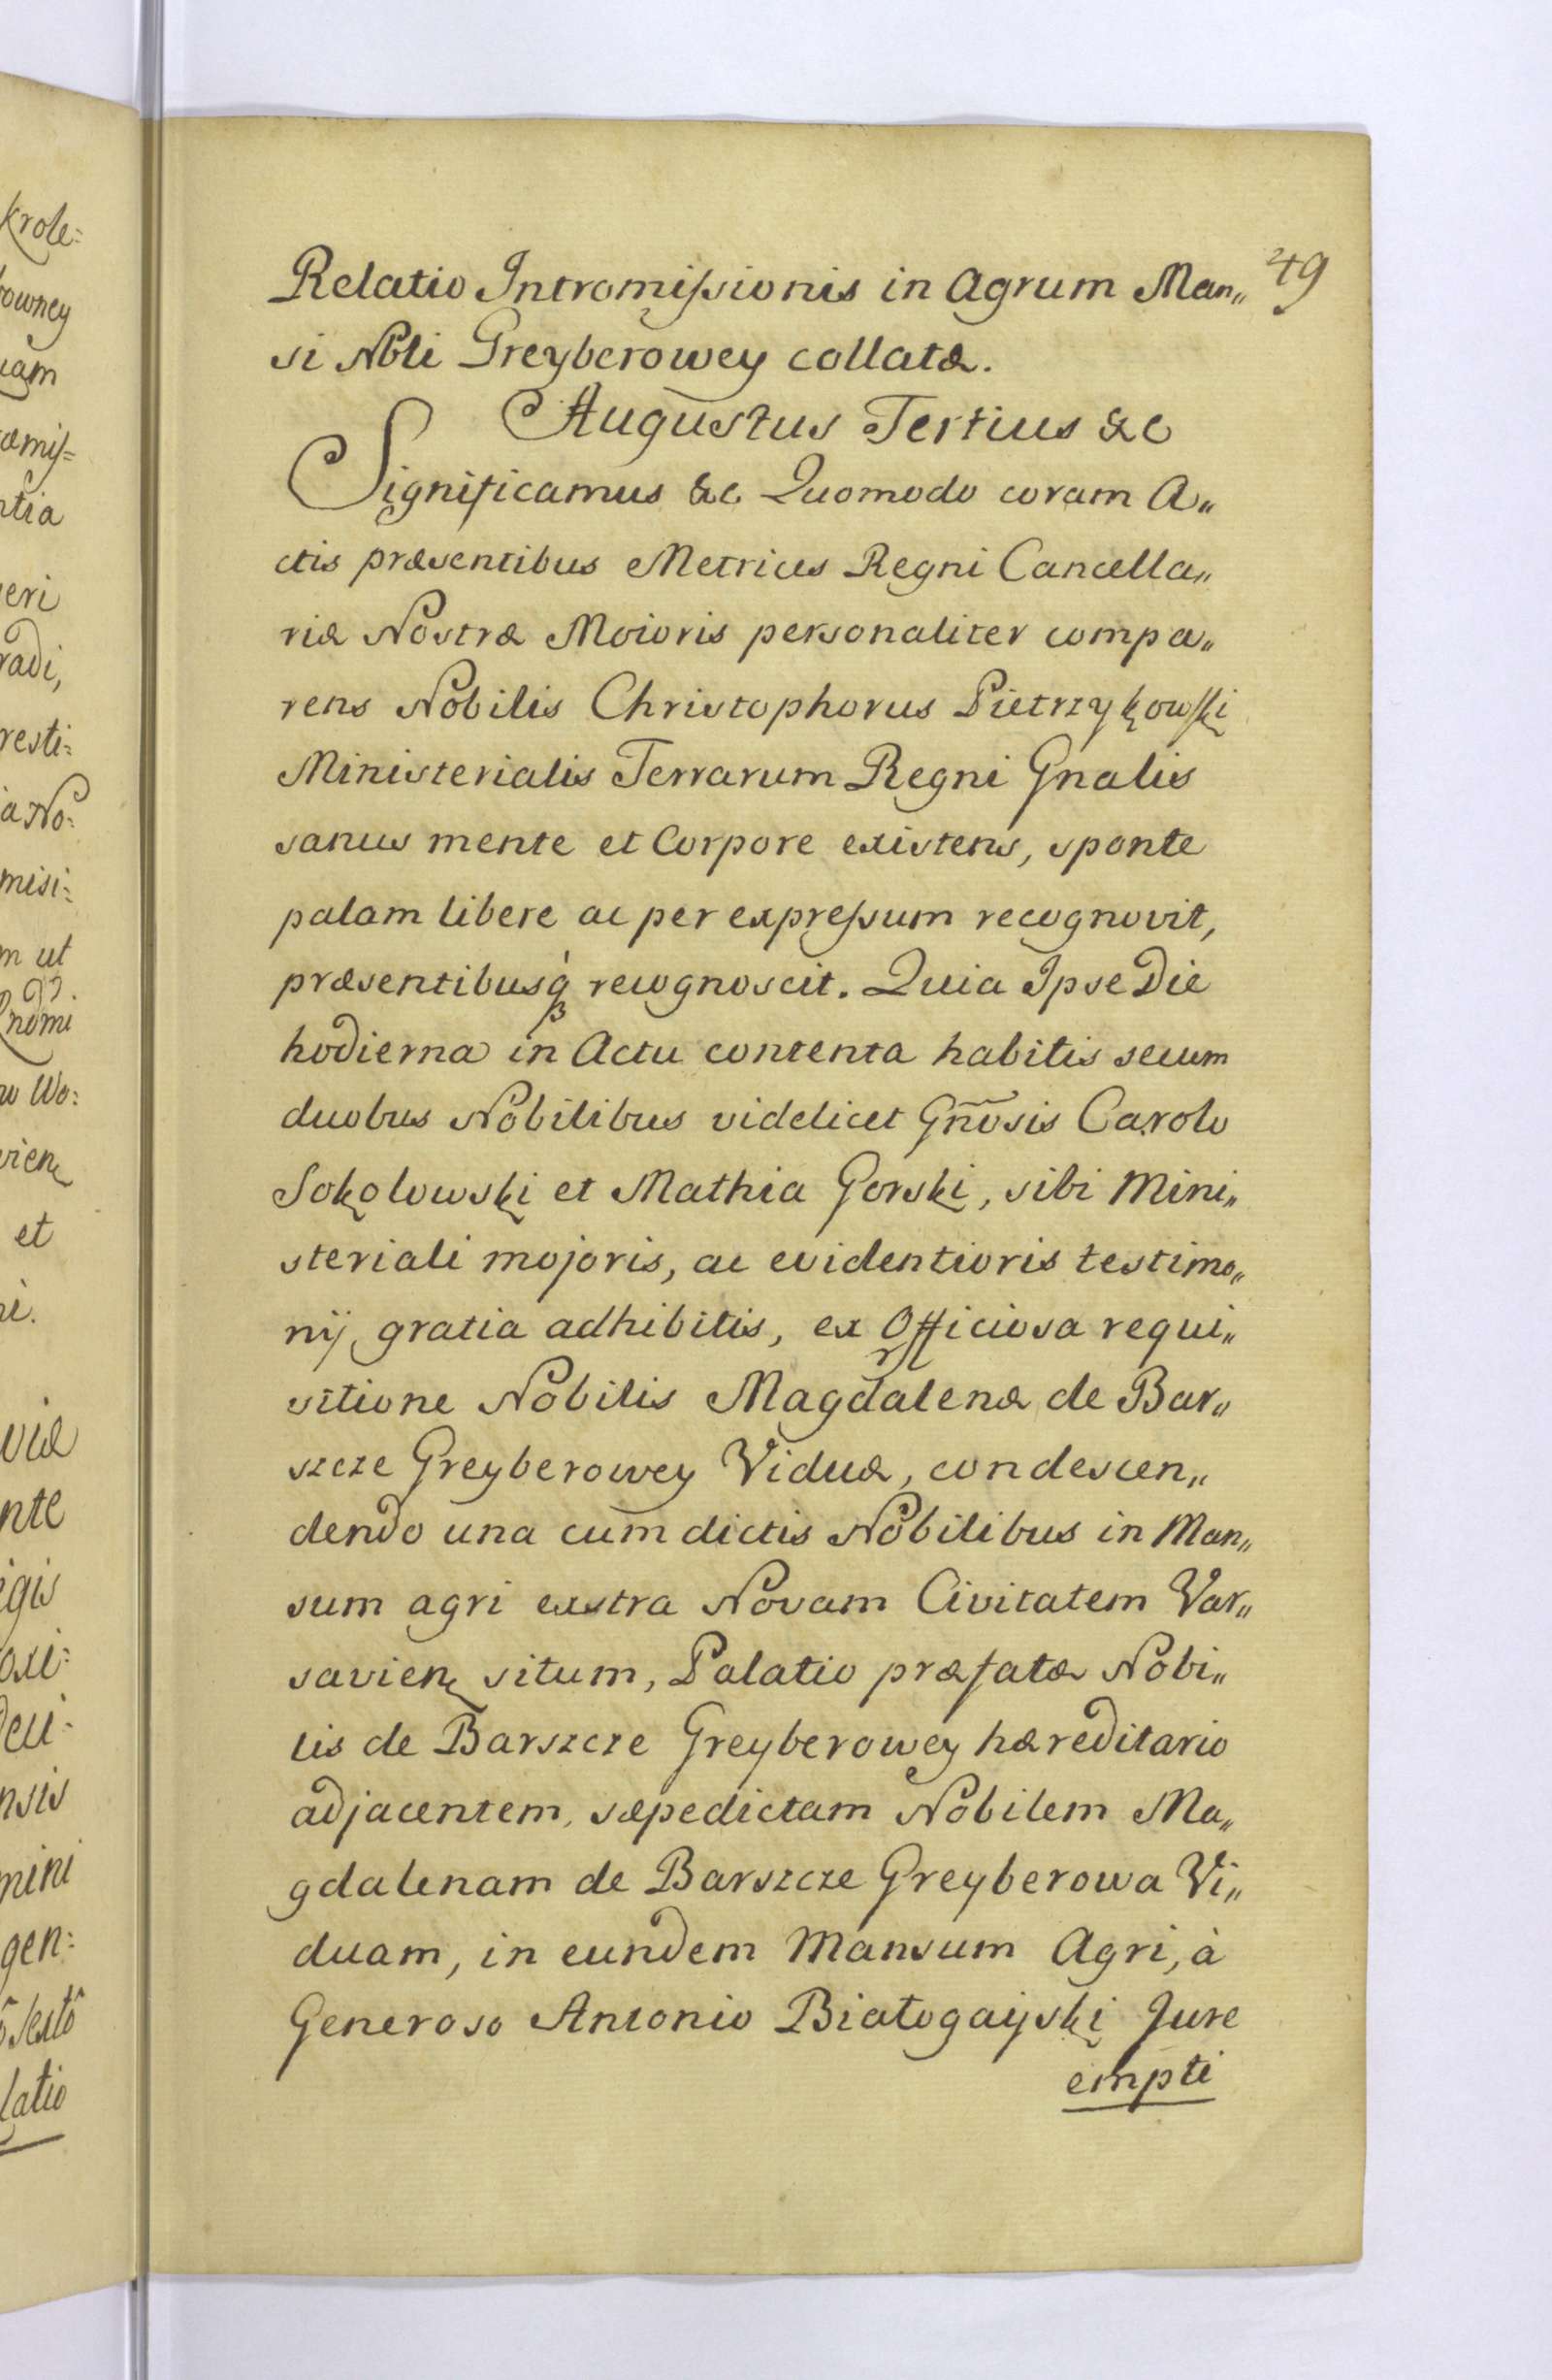 49
Relatio Intromissionis in Agrum Man„
si Nbli Greyberowey collatæ.
Augustus Tertius &c
Significamus &c Quomodo coram A„
ctis præsentibus Metrices Regni Cancella„
riæ Nostræ Moioris personaliter compa„
rens Nobilis Christophorus Pietrzykowski
Ministerialis Terrarum Regni Gnalis
sanus mente et Corpore existens, sponte
palam libere ac per expressum recognovit,
præsentibusq̃ recognoscit. Quia Ipse Die
hodierna in Actu contenta habitis secum
duobus Nobilibus videlicet Gñosis Carolo
Sokolowski et Mathia Gorski, sibi Mini„
steriali mojoris, ac evidentioris testimo„
nij gratia adhibitis, ex Officiosa requi„
sitione Nobilis Magdalenæ de Bar„
szcze Greyberowey Viduæ, condescen„
dendo una cum dictis Nobilibus in Man„
sum agri exstra Novam Civitatem Var„
savien situm, Palatio præfatæ Nobi„
lis de Barszcze Greyberowey hæreditario
adjacentem, sæpedictam Nobilem Ma„
gdalenam de Barszcze Greyberowa Vi„
duam, in eundem Mansum Agri, à
Generoso Antonio Białogayski Jure
empti